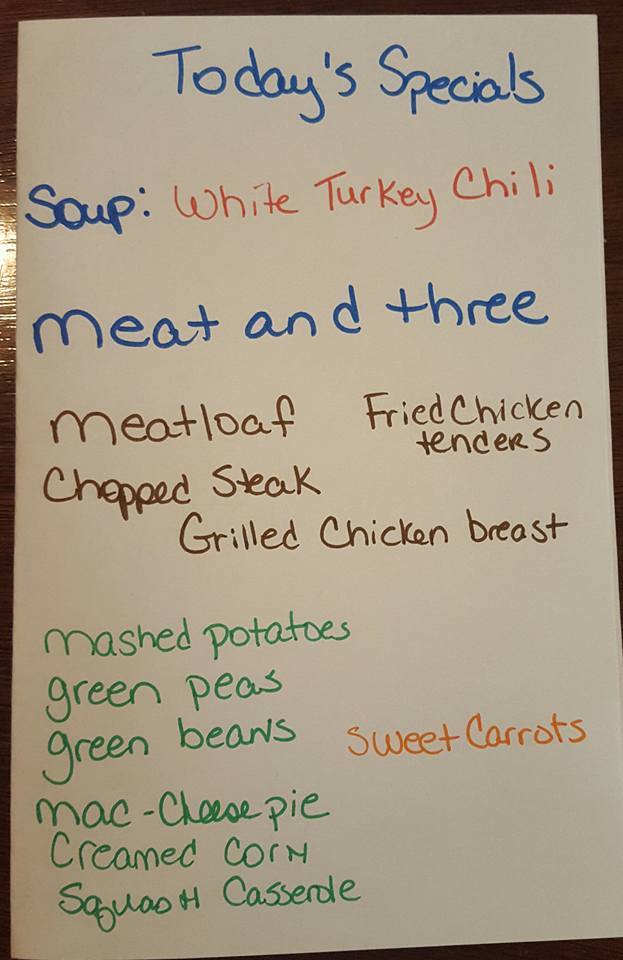 Today's Specials
Soup: White Turkey Chili
meat and three
meatloaf
Fried Chicken
tenders
Chopped Steak
Grilled Chicken breast
mashed potatoes
green peas
green beans
sweet Carrots
mac-Cheese pie
Creamed Corn
Squash Casserole